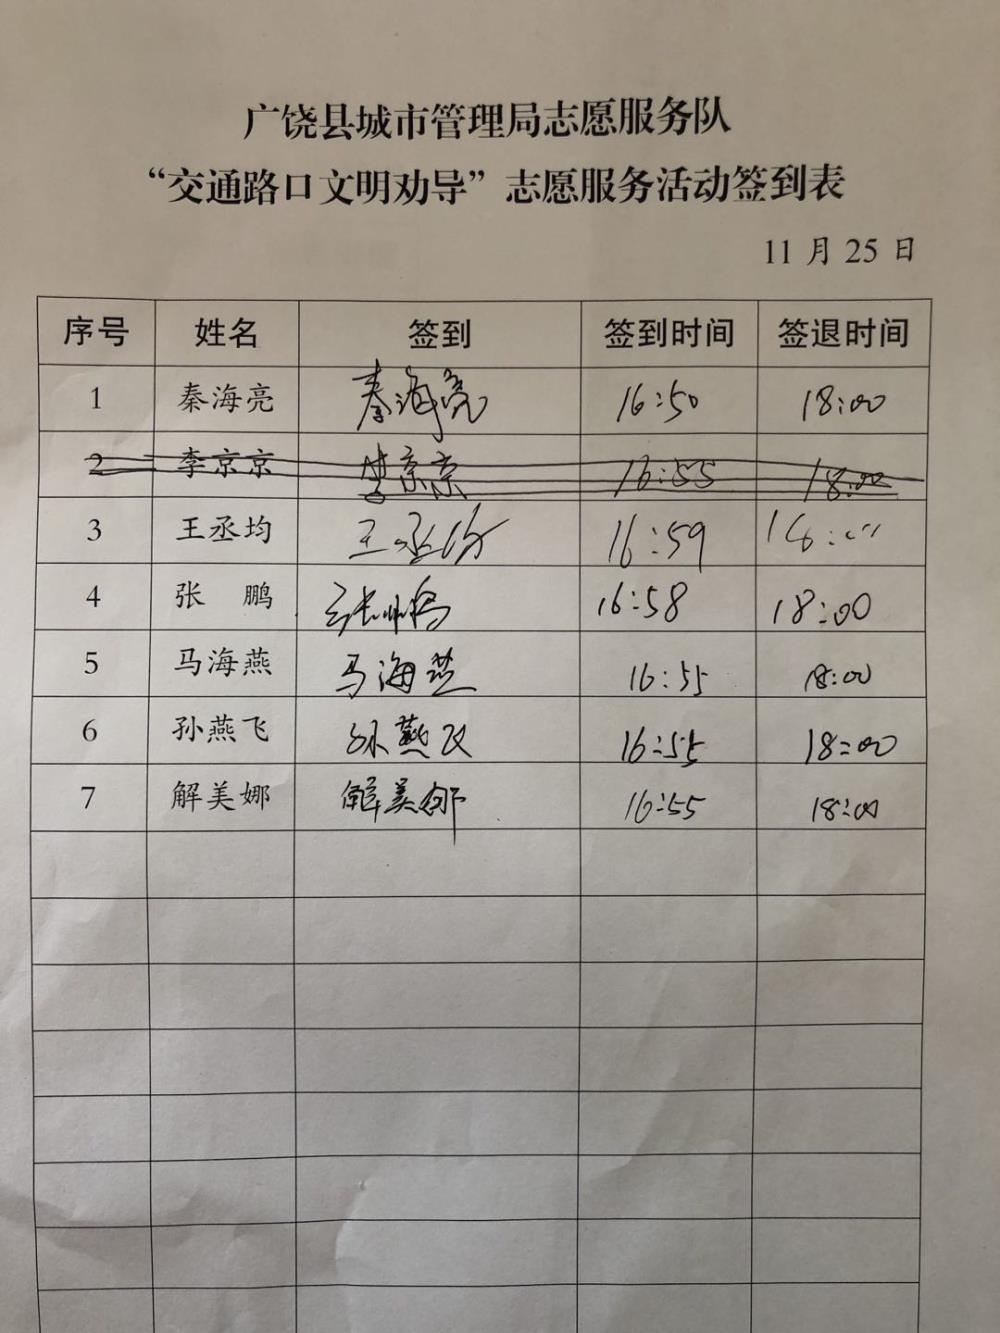 广饶县城市管理局志愿服务队
“交通路口文明劝导”志愿服务活动签到表
11月25日
序号 姓名 签到 签到时间 签退时间
1 秦海亮 秦海亮 16:50 18:00
2 李京京 李京京 16:55 18:00
3 王丞均 王丞均 16:59
4 张 鹏 张鹏 16:58 18:00
5 马海燕 马海燕 16:55 18:00
6 孙燕飞 孙燕飞 16:55 18:00
7 解美娜 解美娜 16:55 18:00